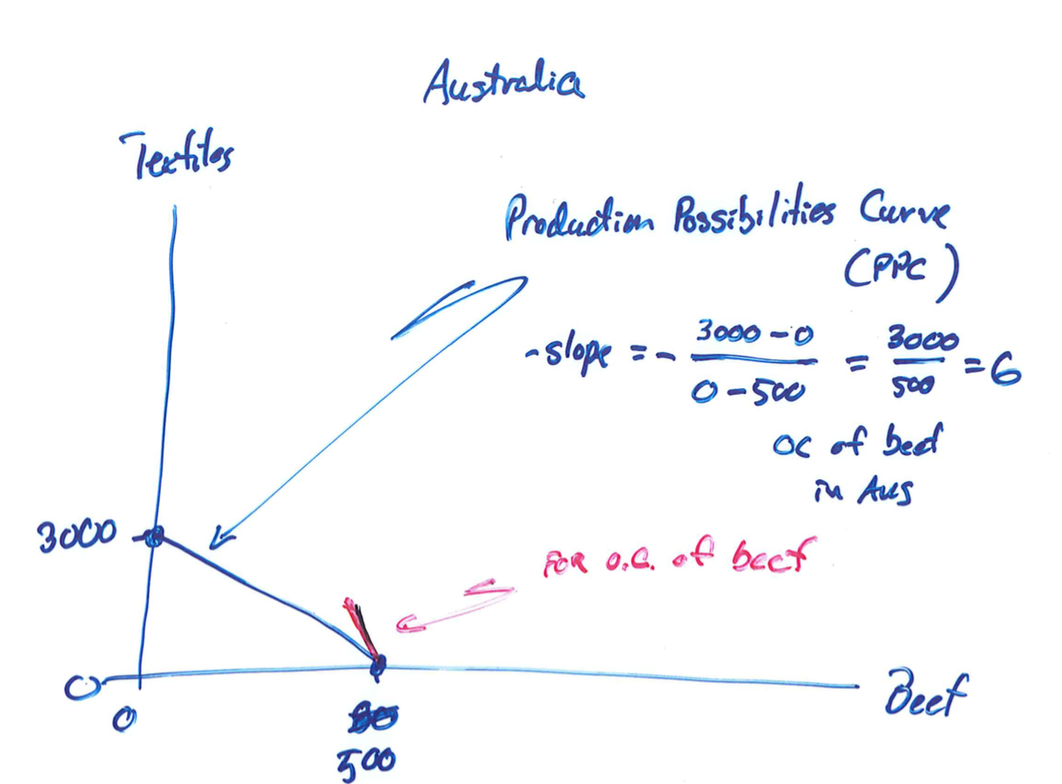 Australia
Textiles
Production Possibilities Curve
(PPC)
-slope = - 3000-0 / 0-500 = 3000 / 500 = 6
OC of beef
in Aus
3000
FOR O.C. of beef
0
0
Beef
500